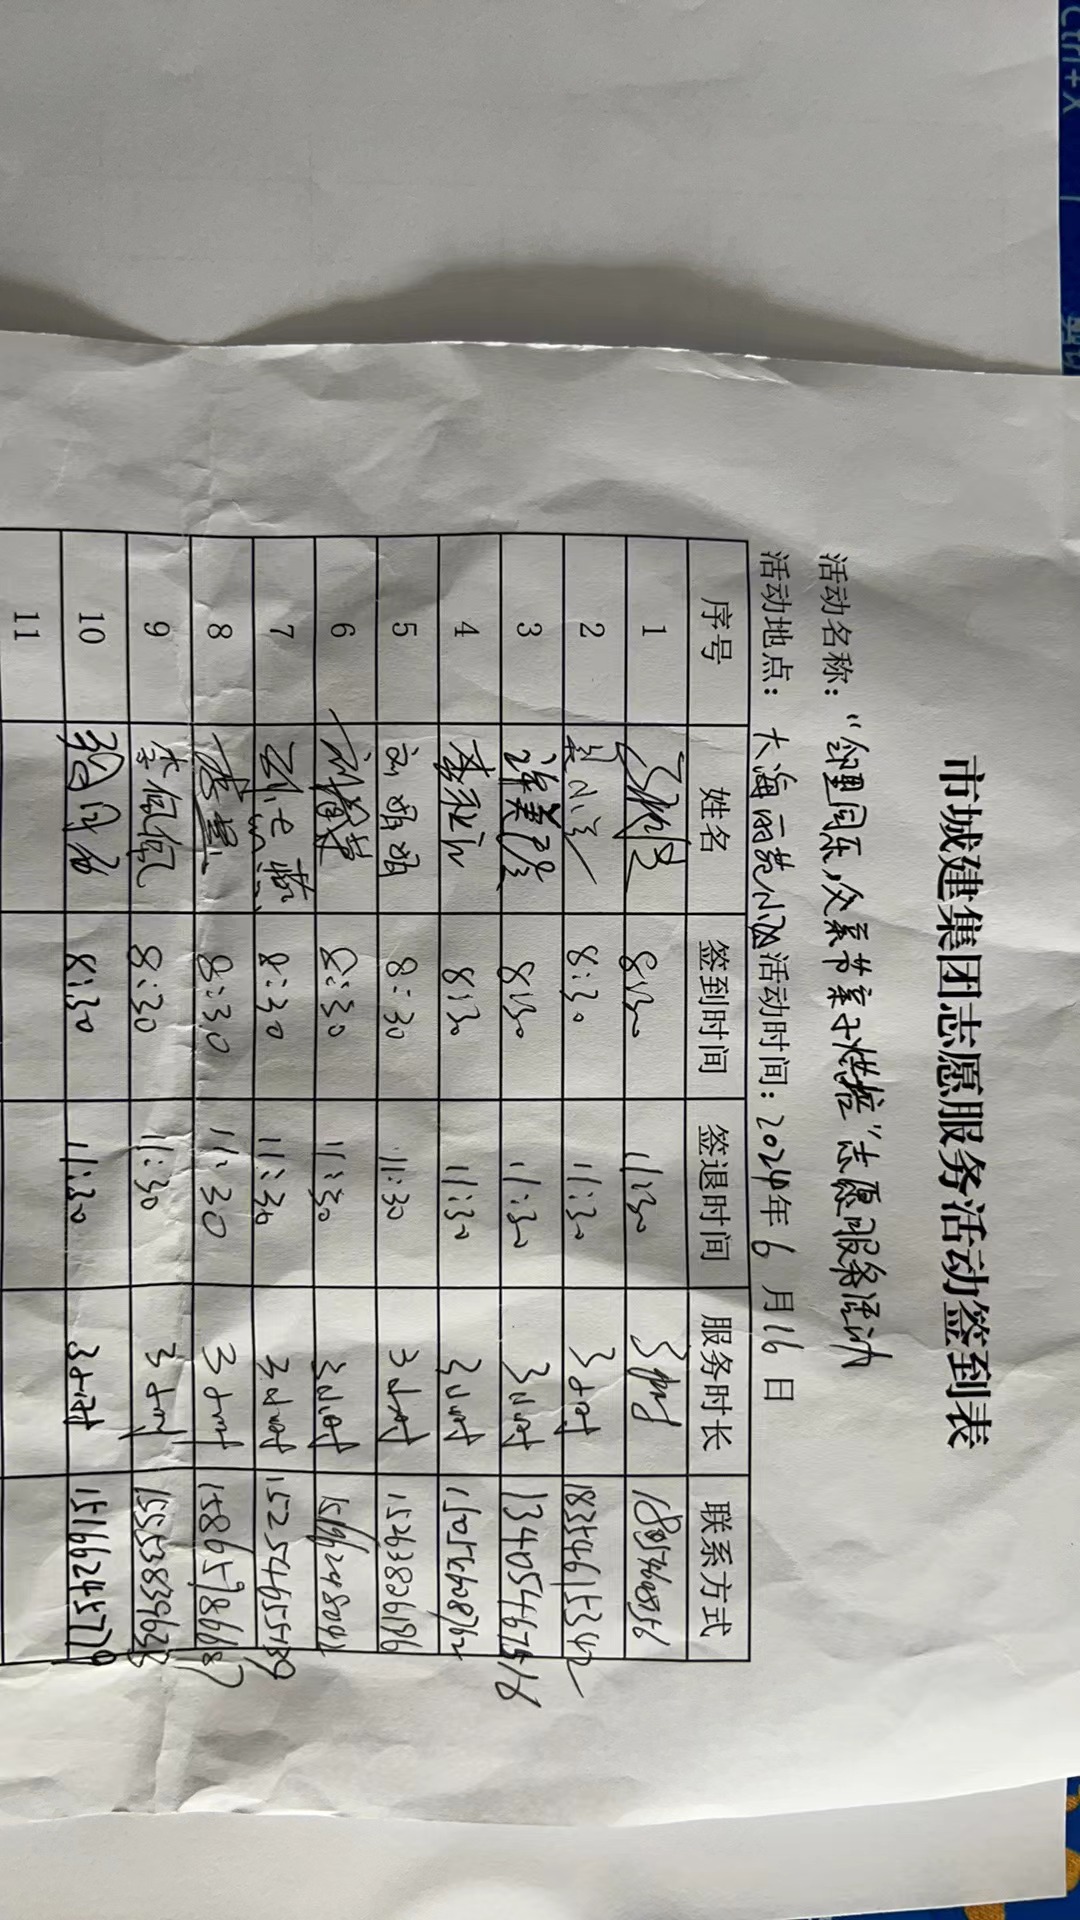 市城建集团志愿服务活动签到表
活动名称：“邻里同乐，父亲节亲子烘焙”志愿服务活动
活动地点：大海丽苑小区 活动时间：2024年6月16日
序号 姓名 签到时间 签退时间 服务时长 联系方式
1 8:30 11:30 3小时
2 8:30 11:30 3小时 18354615342
3 8:30 11:30 3小时 13405467518
4 李永 8:30 11:30 3小时 15054608762
5 刘娟娟 8:30 11:30 3小时 15263826196
6 8:30 11:30 3小时
7 8:30 11:30 3小时 15254655189
8 李星 8:30 11:30 3小时 15865786687
9 李佩佩 8:30 11:30 3小时 15553839638
10 8:30 11:30 3小时 15166245779
11
Ctrl+X